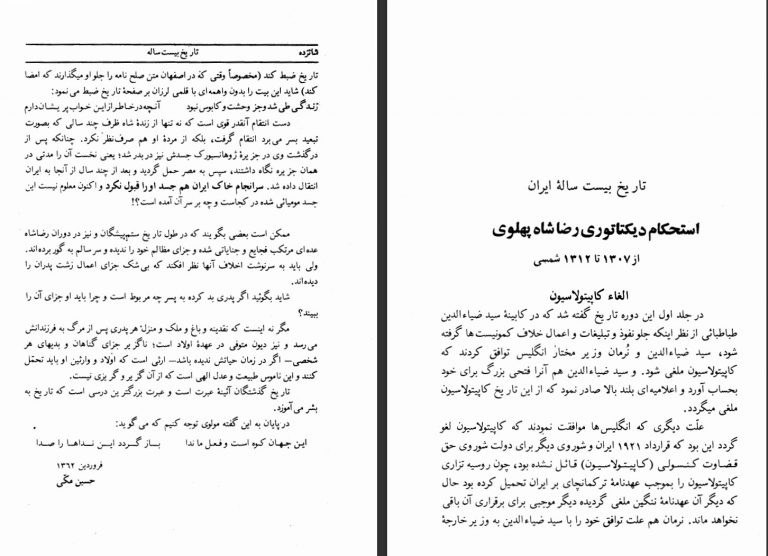 شانزده
تاریخ بیست ساله
تاریخ ضبط کند (مخصوصاً وقتی که در اصفهان متن صلح نامه را جلو او میگذارند که امضا
کند) شاید این بیت را بدون واهمه‌ای با قلمی لرزان بر صفحهٔ تاریخ ضبط می نمود:
زندگی طی شد و جز وحشت و کابوس نبود آنچه در خاطر از این خواب پریشان دارم
دست انتقام آنقدر قوی است که نه تنها از زندهٔ شاه ظرف چند سالی که بصورت
تبعید بسر می برد انتقام گرفت، بلکه از مردهٔ او هم صرف‌نظر نکرد. چنانکه پس از
درگذشت وی در جزیرهٔ ژوهانسبورک جسدش نیز دربدر شد؛ یعنی نخست آن را مدتی در
همان جزیره نگاه داشتند، سپس به مصر حمل گردید و بعد از چند سال از آنجا به ایران
انتقال داده شد. سرانجام خاک ایران هم جسد او را قبول نکرد و اکنون معلوم نیست این
جسد مومیائی شده در کجاست و چه بر سر آن آمده است؟!
ممکن است بعضی بگویند که در طول تاریخ ستم‌پیشگان و نیز در دوران رضاشاه
عده‌ای مرتکب فجایع و جنایاتی شده و جزای مظالم خود را ندیده و سر سالم به گور برده‌اند.
ولی باید به سرنوشت اخلاف آنها نظر افکند که بی شک جزای اعمال زشت پدران را
دیده‌اند.
شاید بگوئید اگر پدری بد کرده به پسر چه مربوط است و چرا باید او جزای آن را
ببیند؟
مگر نه اینست که نقدینه و باغ و ملک و منزل هر پدری پس از مرگ به فرزندانش
می رسد و نیز دیون متوفی در عهدهٔ اولاد است؛ ناگزیر جزای گناهان و بدیهای هر
شخصی— اگر در زمان حیاتش ندیده باشد— ارثی است که اولاد و وارثین او باید تحمّل
کنند و این ناموس طبیعت و عدل الهی است که از آن گریر و گریزی نیست.
تاریخ گذشتگان آئینهٔ عبرت است و عبرت بزرگترین درسی است که تاریخ به
بشر می آموزد.
در پایان به این گفته مولوی توجه کنیم که می گوید:
این جهان کوه است و فعل ما ندا باز گردد این نداها را صدا
فروردین ۱۳۶۲
حسین مکّی
تاریخ بیست سالهٔ ایران
استحکام دیکتاتوری رضاشاه پهلوی
از ۱۳۰۷ تا ۱۳۱۲ شمسی
الغاء کاپیتولاسیون
در جلد اول این دوره تاریخ گفته شد که در کابینهٔ سید ضیاءالدین
طباطبائی از نظر اینکه جلو نفوذ و تبلیغات و اعمال خلاف کمونیست‌ها گرفته
شود، سید ضیاءالدین و نُرمان وزیر مختار انگلیس توافق کردند که
کاپیتولاسیون ملغی شود. و سید ضیاءالدین هم آنرا فتحی بزرگ برای خود
بحساب آورد و اعلامیه‌ای بلند بالا صادر نمود که از این تاریخ کاپیتولاسیون
ملغی میگردد.
علّت دیگری که انگلیس‌ها موافقت نمودند که کاپیتولاسیون لغو
گردد این بود که قرارداد ۱۹۲۱ ایران و شوروی دیگر برای دولت شوروی حق
قضاوت کنسولی (کاپیتولاسیون) قائل نشده بود، چون روسیه تزاری
کاپیتولاسیون را بموجب عهدنامهٔ ترکمانچای بر ایران تحمیل کرده بود حال
که دیگر آن عهدنامهٔ ننگین ملغی گردیده دیگر موجبی برای برقراری آن باقی
نخواهد ماند. نرمان هم علت توافق خود را با سید ضیاءالدین به وزیر خارجهٔ